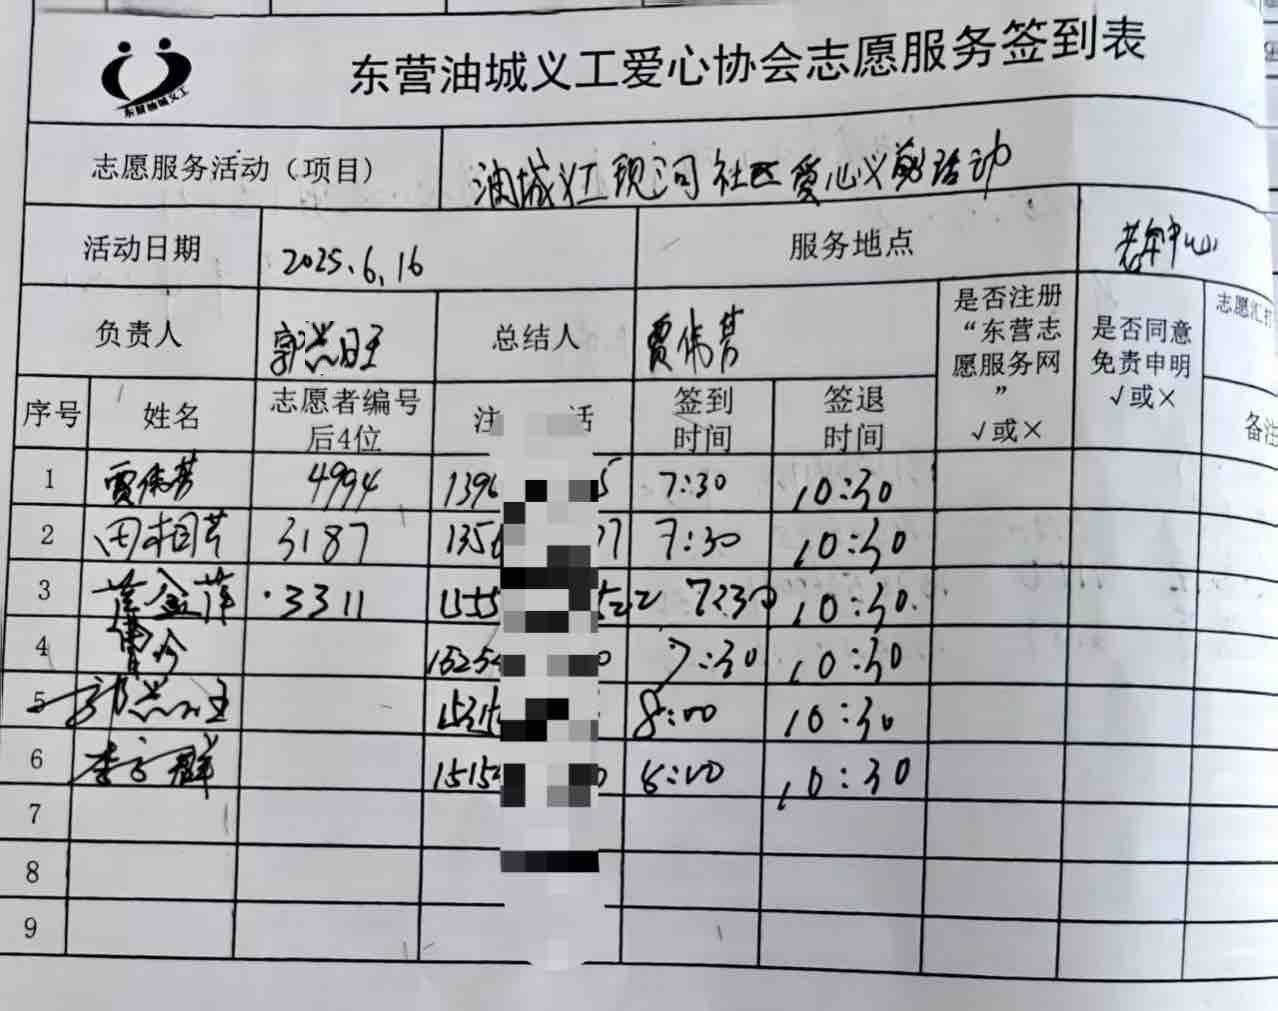 东营油城义工爱心协会志愿服务签到表
东营油城义工
志愿服务活动（项目） 油城义工现河社区爱心义剪活动
活动日期 2025.6.16 服务地点 老年中心
负责人 郭兰旺 总结人 贾伟芳 是否注册“东营志愿服务网” √或× 是否同意免责申明 √或× 志愿汇打
序号 姓名 志愿者编号后4位 注 话 签到时间 签退时间 备注
1 贾伟芳 4994 1396 5 7:30 10:30
2 田相芹 3187 1356 7 7:30 10:30
3 金萍 3311 1555 22 7:30 10:30
4 曹 1525 0 7:30 10:30
5 郭兰旺 1531 8:00 10:30
6 李 群 1515 0 8:00 10:30
7
8
9